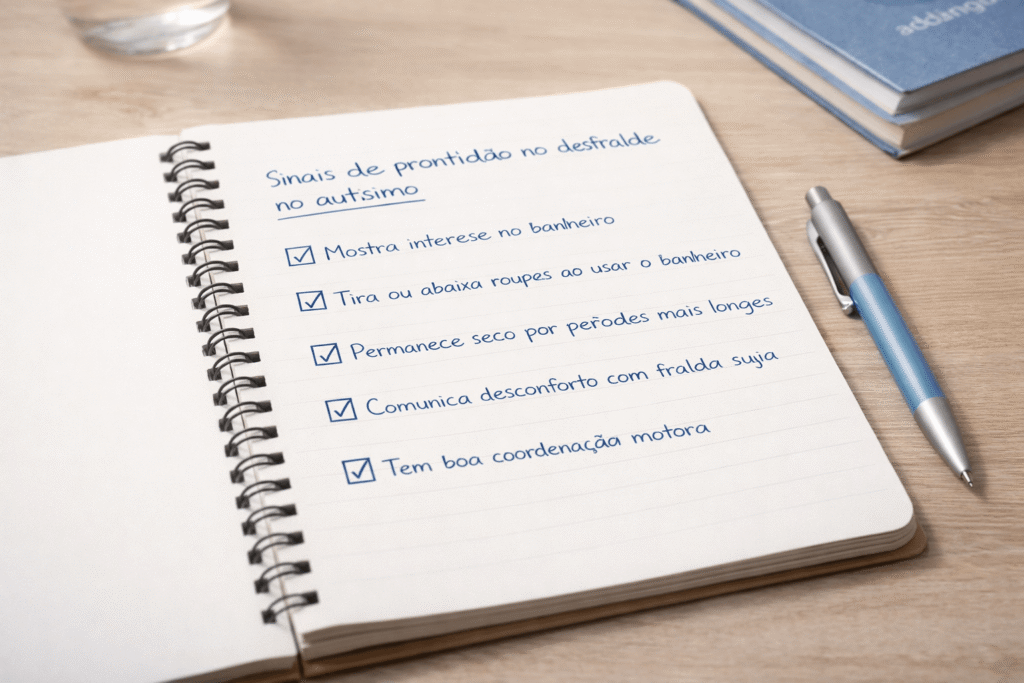 addango
Sinais de prontidão no desfralde
no autisimo
Mostra interese no banheiro
Tira ou abaixa roupes ao usar o banheiro
Permanece seco por períodes mais longes
Comunica desconforto com fralda sujia
Tem boa coordenação motora